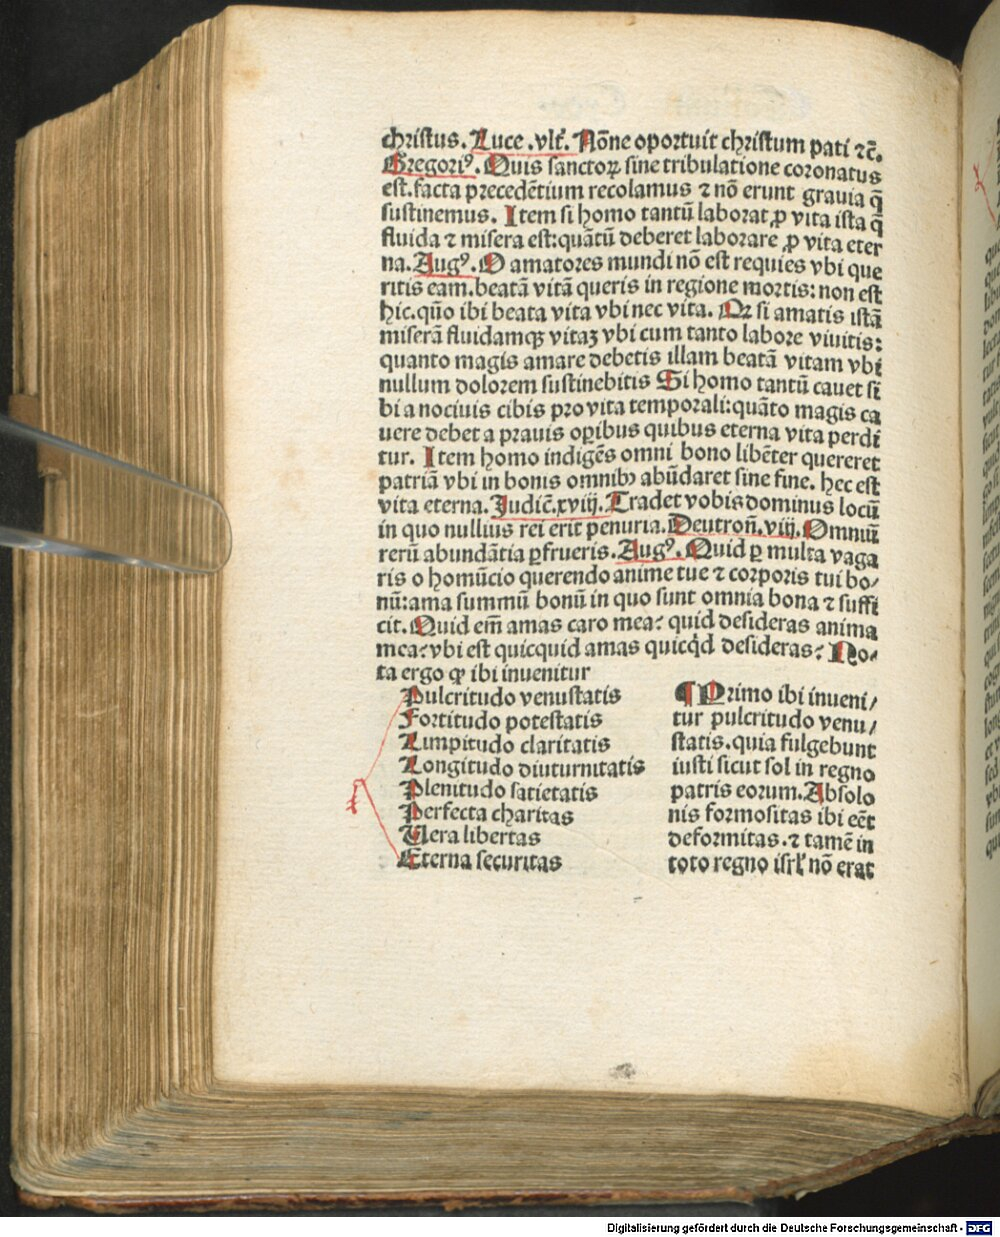 christus. Luce .vlt̄. Nōne oportuit christum pati ⁊c̄.
Gregoriꝰ. Quis sanctoꝝ sine tribulatione coronatus
est. facta precedētium recolamus ⁊ nō erunt grauia q̄
sustinemus. Item si homo tantū laborat ꝓ vita ista q̄
fluida ⁊ misera est: quātū deberet laborare ꝓ vita eter
na. Augꝰ. O amatores mundi nō est requies vbi que
ritis eam. beatā vitā queris in regione mortis: non est
hic. quō ibi beata vita vbi nec vita. Qꝛ si amatis istā
miserā fluidamqꝫ vitaꝫ vbi cum tanto labore viuitis:
quanto magis amare debetis illam beatā vitam vbi
nullum dolorem sustinebitis Si homo tantū cauet si
bi a nociuis cibis pro vita temporali: quāto magis ca
uere debet a prauis oꝑibus quibus eterna vita perdi
tur. Item homo indigēs omni bono libēter quereret
patriā vbi in bonis omnibꝫ abūdaret sine fine. hec est
vita eterna. Judic̄. xviij. Tradet vobis dominus locū
in quo nullius rei erit penuria. Deutron̄. viij. Omniū
rerū abundātia ꝑfrueris. Augꝰ. Quid ꝑ multa vaga
ris o homūcio querendo anime tue ⁊ corporis tui bo/
nū: ama summū bonū in quo sunt omnia bona ⁊ suffi
cit. Quid em̄ amas caro mea? quid desideras anima
mea? vbi est quicquid amas quicq̇d desideras? No/
ta ergo ꝙ ibi inuenitur
Pulcritudo venustatis
Fortitudo potestatis
Limpitudo claritatis
Longitudo diuturnitatis
Plenitudo satietatis
Perfecta charitas
Vera libertas
Eterna securitas
¶ Primo ibi inueni/
tur pulcritudo venu/
statis. quia fulgebunt
iusti sicut sol in regno
patris eorum. Absolo
nis formositas ibi eēt
deformitas. ⁊ tamē in
toto regno isrl̄ nō erat
Digitalisierung gefördert durch die Deutsche Forschungsgemeinschaft - DFG